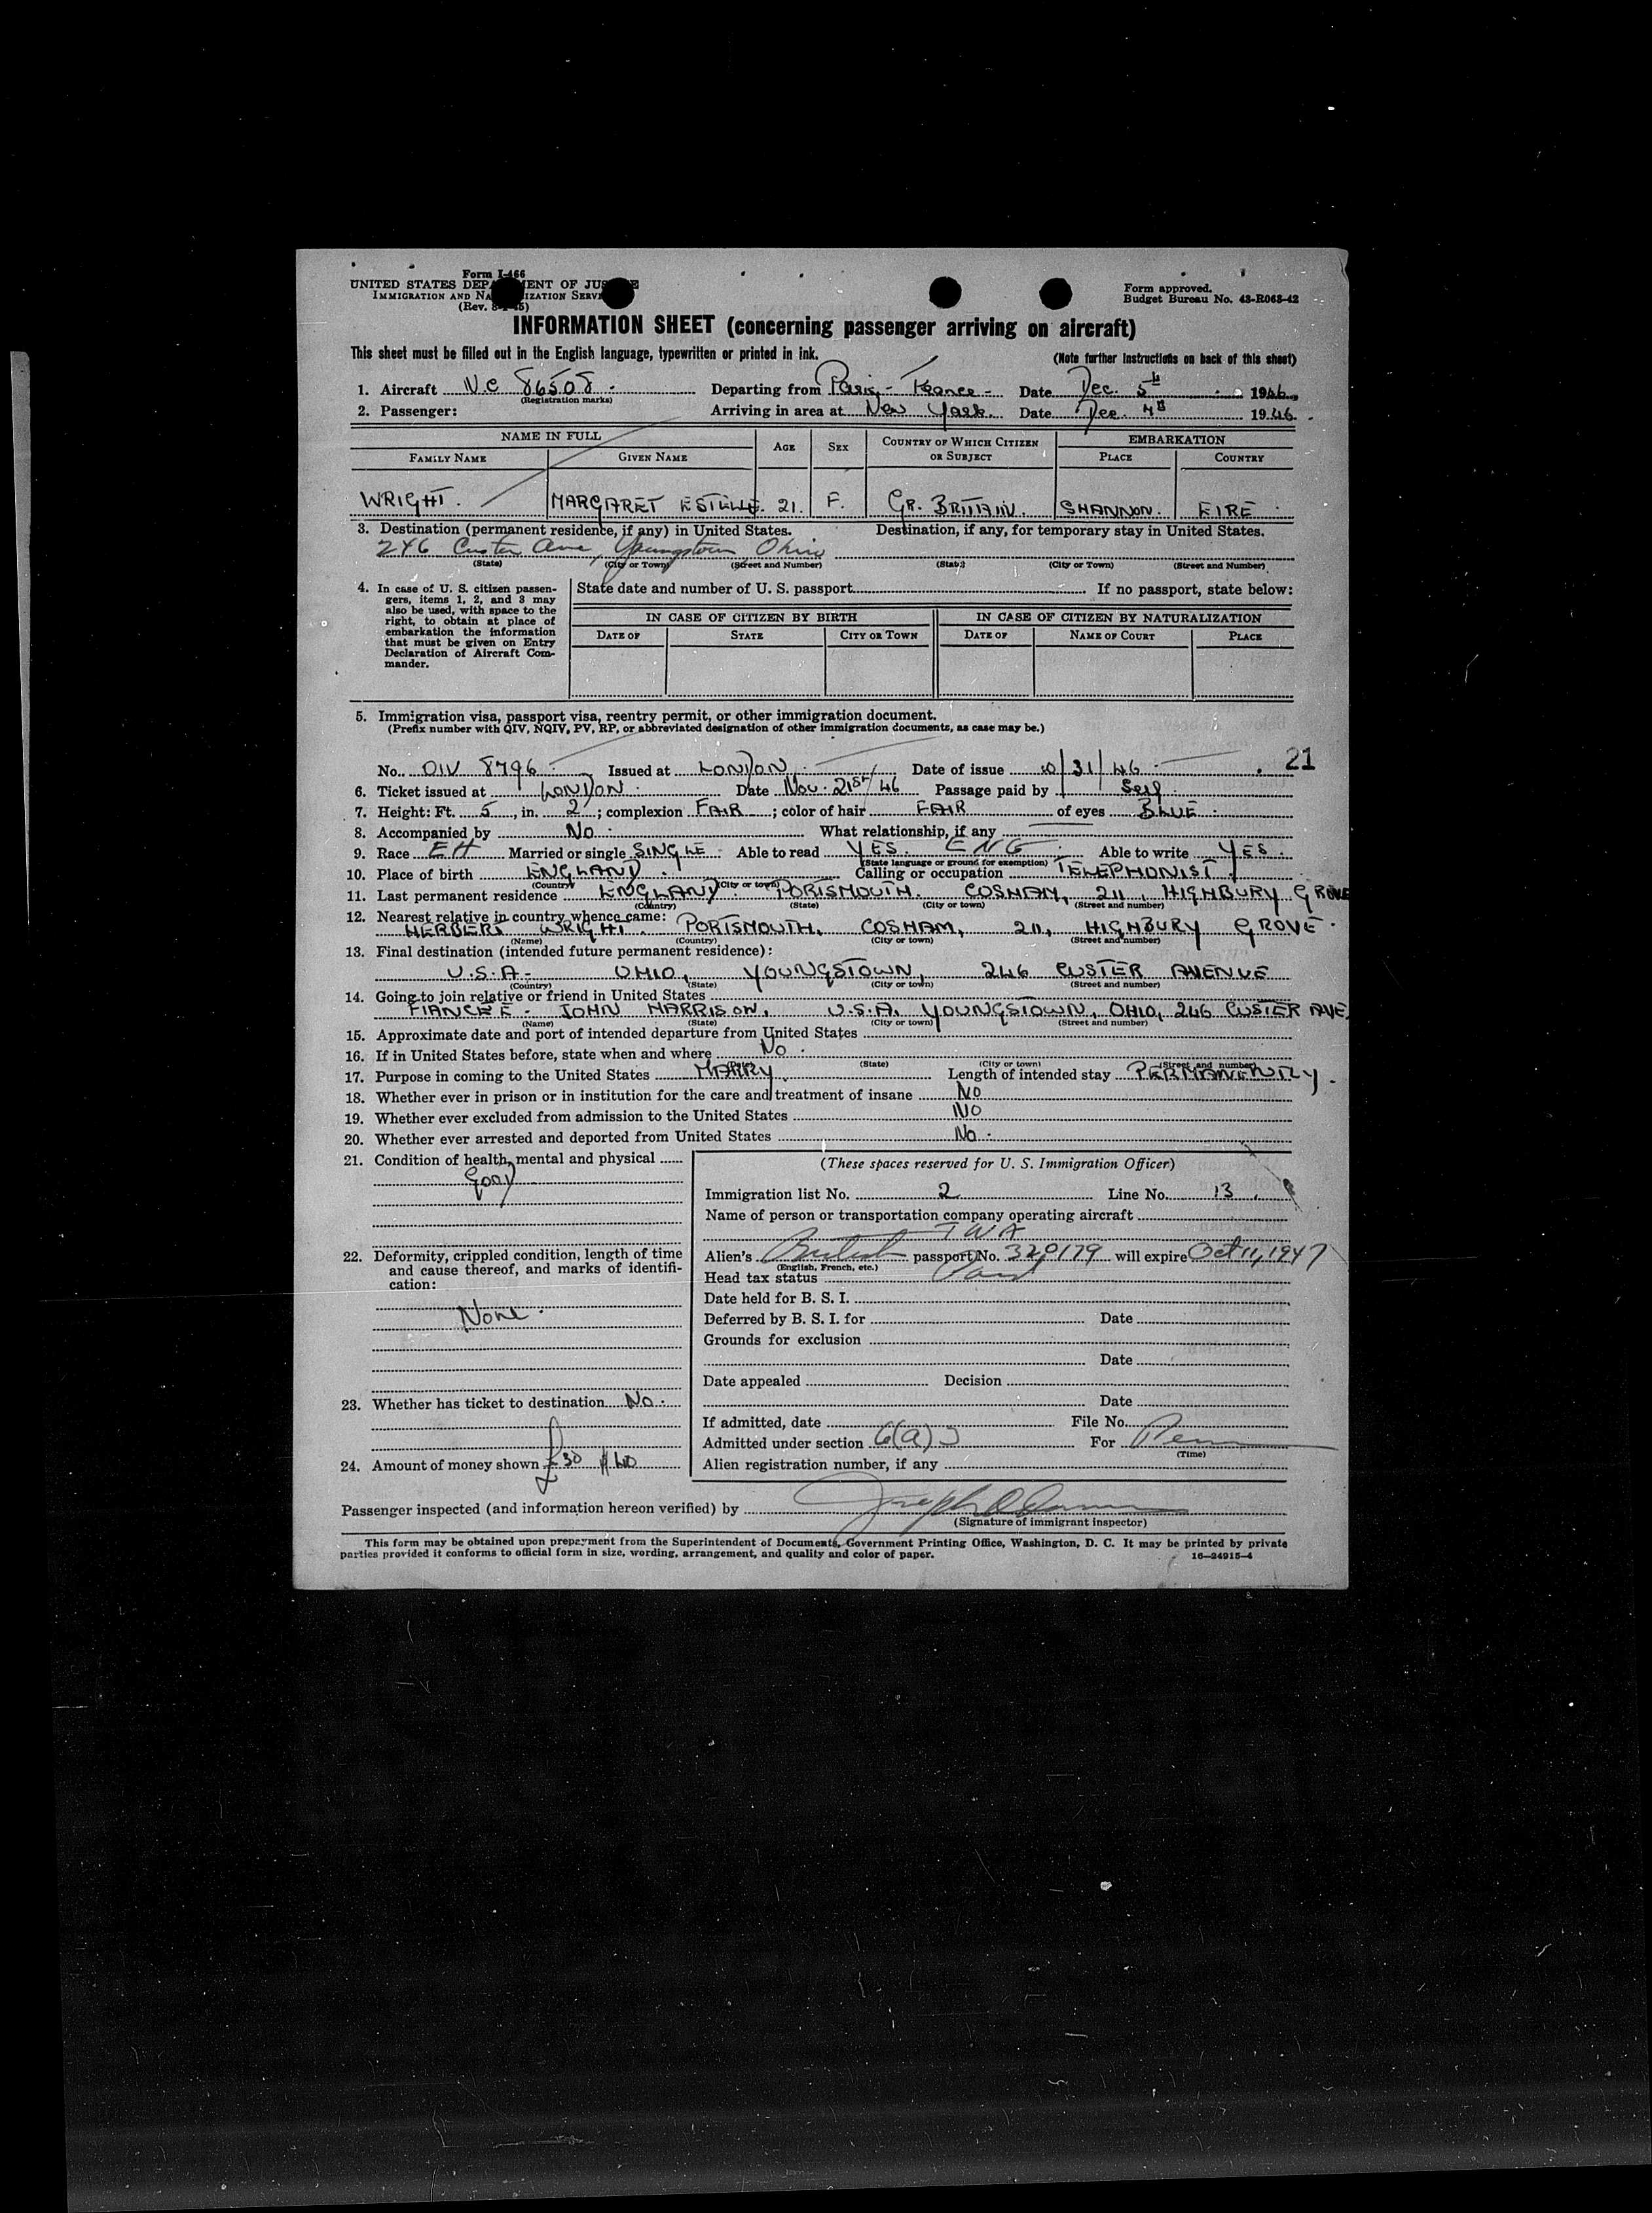 Form I-466
UNITED STATES DEPA ENT OF JUS E
IMMIGRATION AND NA IZATION SERV
(Rev. 8- -45)
Form approved.
Budget Bureau No. 43-R063-42
INFORMATION SHEET (concerning passenger arriving on aircraft)
This sheet must be filled out in the English language, typewritten or printed in ink.
(Note further instructions on back of this sheet)
1. Aircraft N.C 86508. Departing from Paris - France - Date Dec. 5th 1946
(Registration marks)
2. Passenger: Arriving in area at New York. Date Dec. 1946.
NAME IN FULL AGE SEX COUNTRY OF WHICH CITIZEN OR SUBJECT EMBARKATION
FAMILY NAME GIVEN NAME PLACE COUNTRY
WRIGHT. MARGARET ESTELLE. 21. F. GR. BRITAIN. SHANNON. EIRE
3. Destination (permanent residence, if any) in United States. Destination, if any, for temporary stay in United States.
246 Custer Ave, Youngstown Ohio
(State) (City or Town) (Street and Number) (State) (City or Town) (Street and Number)
4. In case of U. S. citizen passen-
gers, items 1, 2, and 3 may
also be used, with space to the
right, to obtain at place of
embarkation the information
that must be given on Entry
Declaration of Aircraft Com-
mander.
State date and number of U. S. passport If no passport, state below:
IN CASE OF CITIZEN BY BIRTH IN CASE OF CITIZEN BY NATURALIZATION
DATE OF STATE CITY OR TOWN DATE OF NAME OF COURT PLACE
5. Immigration visa, passport visa, reentry permit, or other immigration document.
(Prefix number with QIV, NQIV, PV, RP, or abbreviated designation of other immigration documents, as case may be.)
21
No. QIV 8796 Issued at LONDON Date of issue 10/31/46
6. Ticket issued at LONDON. Date Nov. 21st/46 Passage paid by Self
7. Height: Ft. 5, in. 2; complexion FAIR; color of hair FAIR of eyes BLUE.
8. Accompanied by No. What relationship, if any
9. Race EH Married or single SINGLE Able to read YES. ENG. Able to write YES.
(State language or ground for exemption)
10. Place of birth ENGLAND. Calling or occupation TELEPHONIST.
(Country) (City or town)
11. Last permanent residence ENGLAND. PORTSMOUTH. COSHAM, 211, HIGHBURY GROVE
(Country) (State) (City or town) (Street and number)
12. Nearest relative in country whence came:
HERBERT WRIGHT. PORTSMOUTH, COSHAM, 211, HIGHBURY GROVE.
(Name) (Country) (City or town) (Street and number)
13. Final destination (intended future permanent residence):
U.S.A- OHIO, YOUNGSTOWN, 246 CUSTER AVENUE
(Country) (State) (City or town) (Street and number)
14. Going to join relative or friend in United States
FIANCEE- JOHN HARRISON, U.S.A. YOUNGSTOWN, OHIO, 246 CUSTER AVE.
(Name) (State) (City or town) (Street and number)
15. Approximate date and port of intended departure from United States
16. If in United States before, state when and where No.
(Date) (State) (City or town) (Street and number)
17. Purpose in coming to the United States MARRY. Length of intended stay PERMANENTLY.
18. Whether ever in prison or in institution for the care and treatment of insane NO
19. Whether ever excluded from admission to the United States NO
20. Whether ever arrested and deported from United States No.
21. Condition of health, mental and physical
Good
22. Deformity, crippled condition, length of time
and cause thereof, and marks of identifi-
cation:
None.
23. Whether has ticket to destination No.
24. Amount of money shown £30 $40
(These spaces reserved for U. S. Immigration Officer)
Immigration list No. 2 Line No. 13
Name of person or transportation company operating aircraft
TWA
Alien's British passport No. 320179 will expire Oct 11, 1947
(English, French, etc.)
Head tax status Paid
Date held for B. S. I.
Deferred by B. S. I. for Date
Grounds for exclusion
Date
Date appealed Decision
Date
If admitted, date File No.
Admitted under section 6(a)3 For Perm
(Time)
Alien registration number, if any
Passenger inspected (and information hereon verified) by
(Signature of immigrant inspector)
This form may be obtained upon prepayment from the Superintendent of Documents, Government Printing Office, Washington, D. C. It may be printed by private
parties provided it conforms to official form in size, wording, arrangement, and quality and color of paper.
16—24915-4